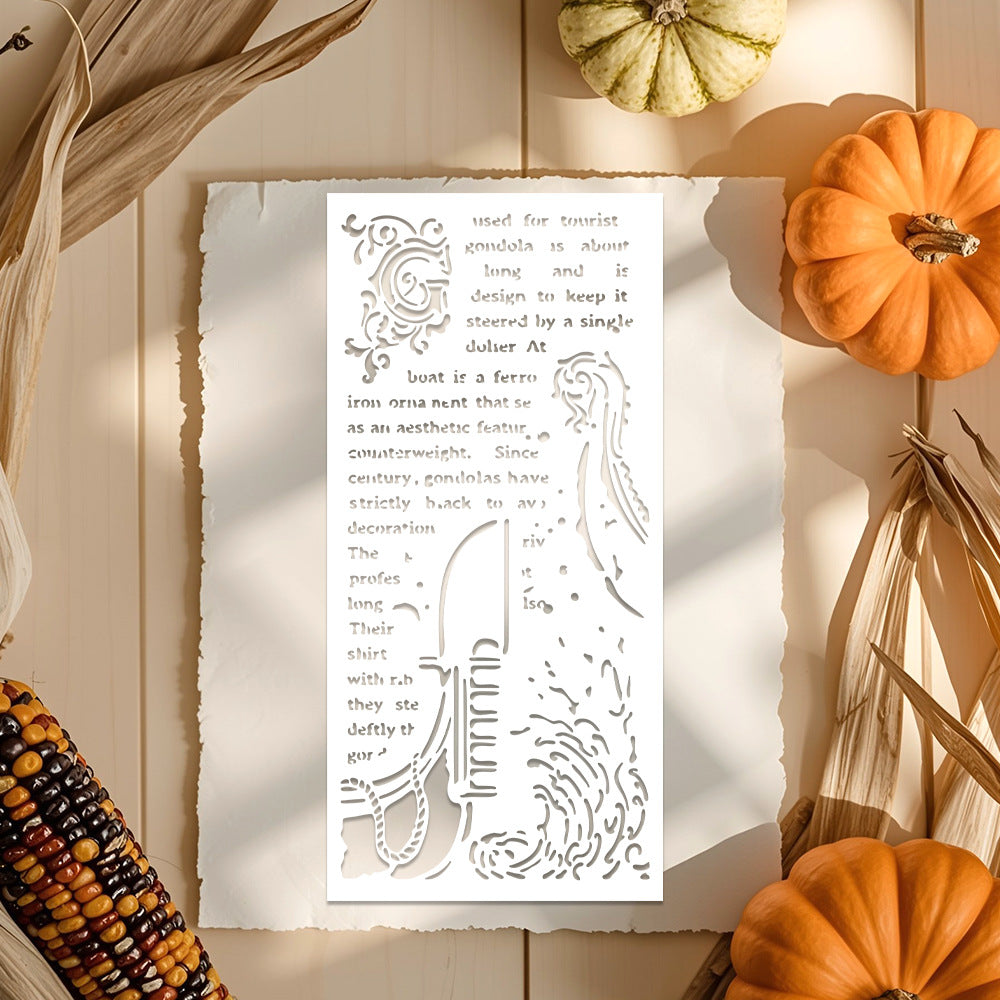 G
used for tourist
gondola is about
long and is
design to keep it
steered by a single
At
boat is a ferro
iron ornament that se
as an aesthetic featur
counterweight. Since
century, gondolas have
strictly black to avo
decoration
The riv
profes
long lso
Their
shirt
with rib
they ste
deftly th
gon